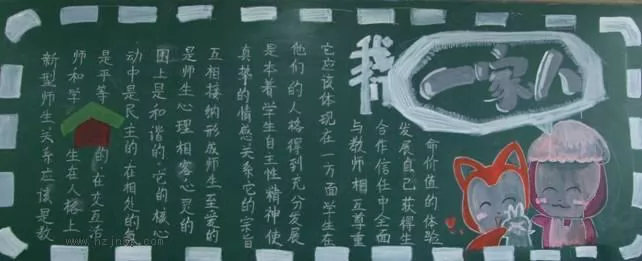 我们
一家人
新型师生关系应该是教
师和学生在人格上
是平等的在交互活
动中是民主的在相处的氛
围上是和谐的.它的核心
是师生心理相容心灵的
互相接纳形成师生至爱的
真挚的情感关系它的宗旨
是本着学生自主性精神使
他们的人格得到充分发展
它应该体现在一方面学生在
与教师相互尊重
合作信任中全面
发展自己获得生
命价值的体验